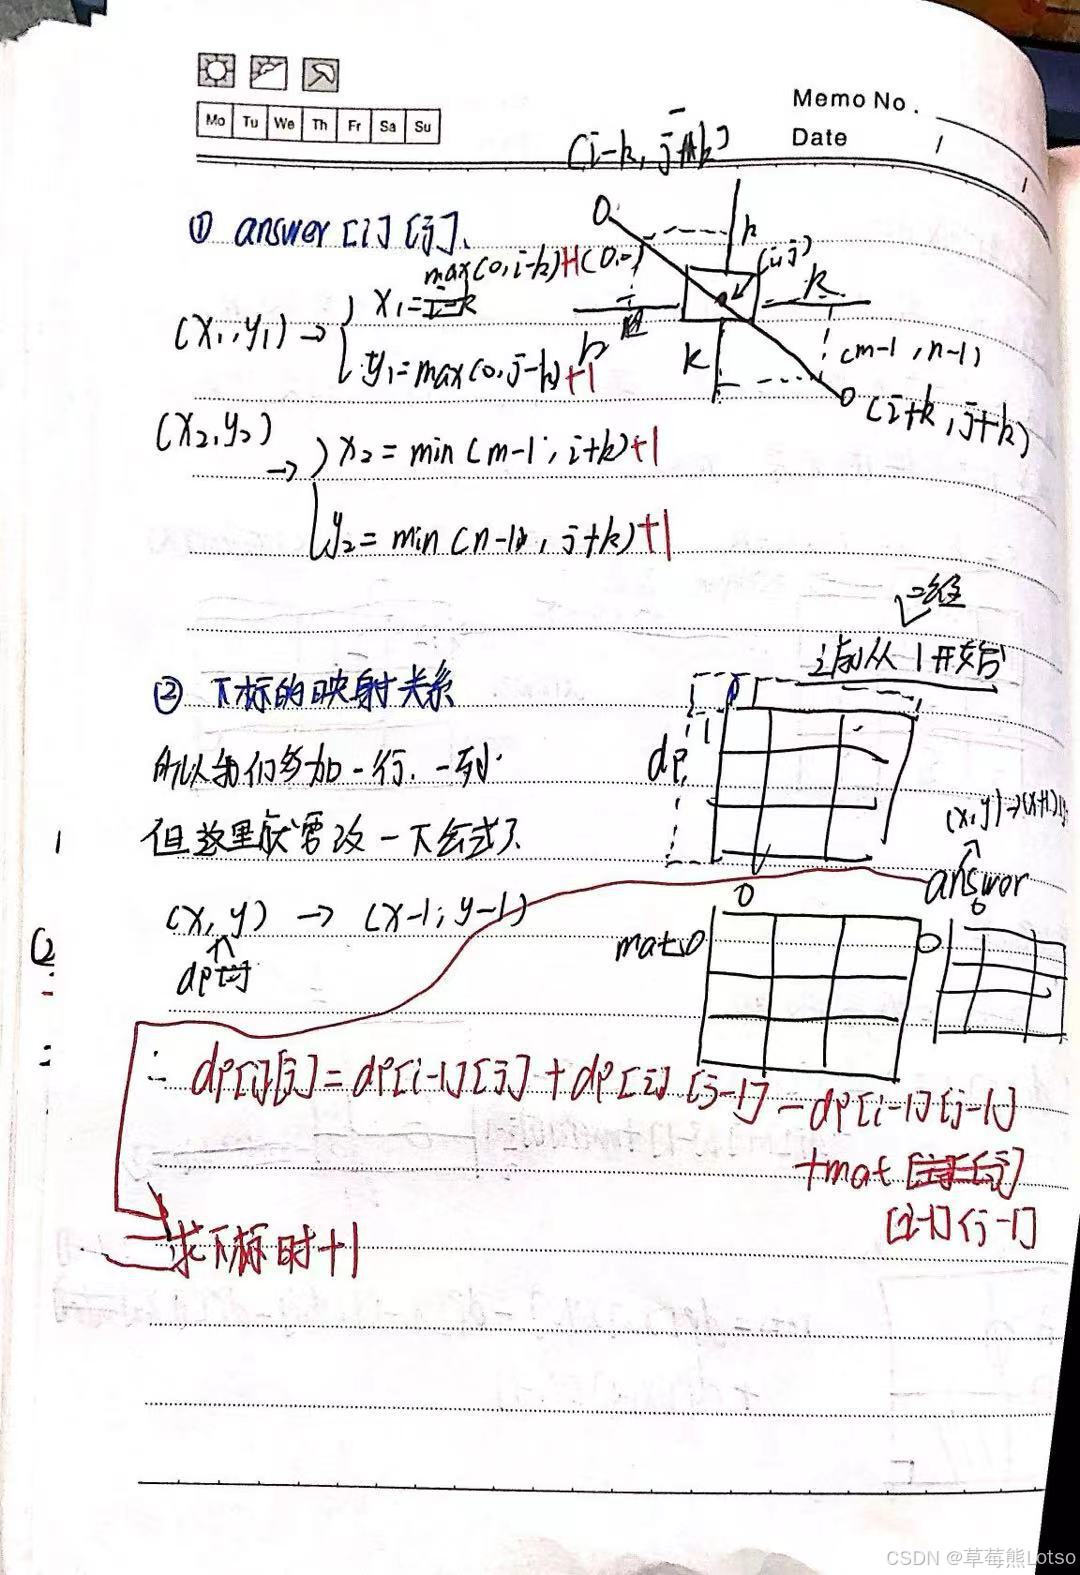 Memo No.
Mo Tu We Th Fr Sa Su
Date
(i-k, j+k)
① answer [i][j].
x₁ = max(0, i-k)+1
(0,0)
(i,j)
k
k
k
(x₁,y₁) →
y₁ = max(0, j-k)+1
(m-1, n-1)
(i+k, j+k)
(x₂,y₂) →
x₂ = min(m-1, i+k)+1
y₂ = min(n-1, j+k)+1
从1开始
② 下标的映射关系
dp
所以我们多加一行.一列.
但这里就需改一下公式了
(x,y)→(x+1)
answer
(x,y) → (x-1, y-1)
0
0
mat 0
0
dp
∴ dp[i][j] = dp[i-1][j] + dp[i][j-1] - dp[i-1][j-1]
+mat
[i-1][j-1]
求下标时+1
CSDN @草莓熊Lotso